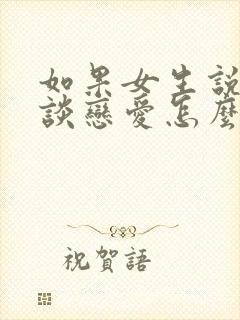 如果女生說
談戀愛怎麼
祝賀語